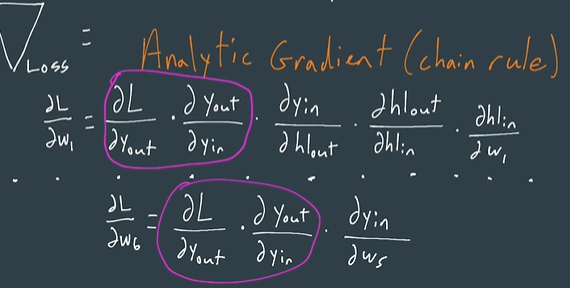 ∇Loss =
Analytic Gradient (chain rule)
∂L/∂w₁ = ∂L/∂Yout · ∂Yout/∂Yin · ∂yin/∂h1out · ∂h1out/∂h1in · ∂h1in/∂w₁
. . . . . . . . . . . . . .
∂L/∂w6 = ∂L/∂Yout · ∂Yout/∂yin · ∂yin/∂w5